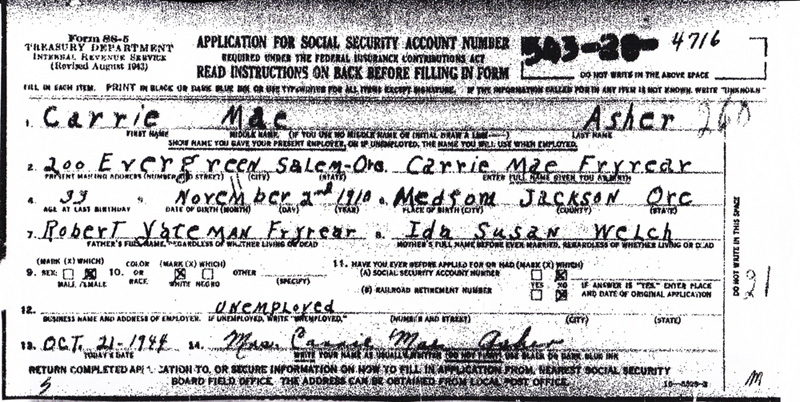 Form SS-5
TREASURY DEPARTMENT
INTERNAL REVENUE SERVICE
(Revised August 1943)
APPLICATION FOR SOCIAL SECURITY ACCOUNT NUMBER
REQUIRED UNDER THE FEDERAL INSURANCE CONTRIBUTIONS ACT
READ INSTRUCTIONS ON BACK BEFORE FILLING IN FORM
543-28-4716
DO NOT WRITE IN THE ABOVE SPACE
FILL IN EACH ITEM. PRINT IN BLACK OR DARK BLUE INK OR USE TYPEWRITER FOR ALL ITEMS EXCEPT SIGNATURE. IF THE INFORMATION CALLED FOR IN ANY ITEM IS NOT KNOWN, WRITE "UNKNOWN"
1. Carrie Mae Asher 260
FIRST NAME MIDDLE NAME (IF YOU USE NO MIDDLE NAME OR INITIAL DRAW A LINE——) LAST NAME
SHOW NAME YOU GAVE YOUR PRESENT EMPLOYER, OR IF UNEMPLOYED, THE NAME YOU WILL USE WHEN EMPLOYED.
2. 200 Evergreen Salem-Ore. Carrie Mae Fryrear
PRESENT MAILING ADDRESS (NUMBER AND STREET) (CITY) (STATE) ENTER FULL NAME GIVEN YOU AT BIRTH
4. 33 November 2nd 1910 6. Medsom Jackson Ore
AGE AT LAST BIRTHDAY DATE OF BIRTH (MONTH) (DAY) (YEAR) PLACE OF BIRTH (CITY) (COUNTY) (STATE)
7. Robert Vateman Fryrear 8. Ida Susan Welch
FATHER'S FULL NAME, REGARDLESS OF WHETHER LIVING OR DEAD MOTHER'S FULL NAME BEFORE EVER MARRIED, REGARDLESS OF WHETHER LIVING OR DEAD
(MARK (X) WHICH) COLOR (MARK (X) WHICH) 11. HAVE YOU EVER BEFORE APPLIED FOR OR HAD (MARK (X) WHICH)
9. SEX: 10. OR RACE OTHER (A) SOCIAL SECURITY ACCOUNT NUMBER
MALE FEMALE WHITE NEGRO (SPECIFY) YES NO IF ANSWER IS "YES," ENTER PLACE
(B) RAILROAD RETIREMENT NUMBER AND DATE OF ORIGINAL APPLICATION
DO NOT WRITE IN THIS SPACE
21
12. UNEMPLOYED
BUSINESS NAME AND ADDRESS OF EMPLOYER. IF UNEMPLOYED, WRITE "UNEMPLOYED." (NUMBER AND STREET) (CITY) (STATE)
13. OCT. 21-1944 14. Mrs. Carrie Mae Asher
TODAY'S DATE WRITE YOUR NAME AS USUALLY WRITTEN (DO NOT PRINT) USE BLACK OR DARK BLUE INK
RETURN COMPLETED APPLICATION TO, OR SECURE INFORMATION ON HOW TO FILL IN APPLICATION FROM, NEAREST SOCIAL SECURITY
BOARD FIELD OFFICE. THE ADDRESS CAN BE OBTAINED FROM LOCAL POST OFFICE.
M